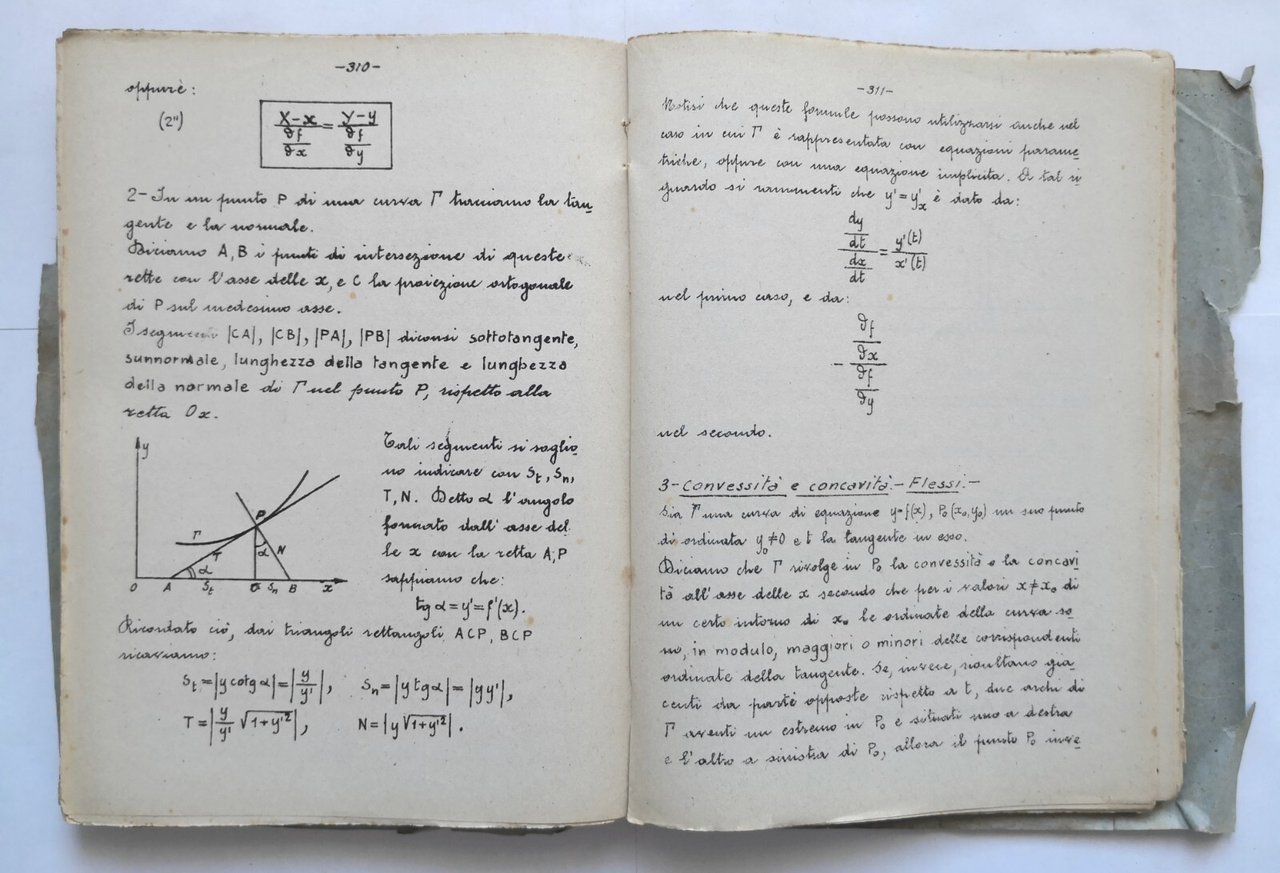 -310-
oppure:
(2'')
X-x / ∂f/∂x = Y-y / ∂f/∂y
2-In un punto P di una curva Γ tracciamo la tan
gente e la normale.
Diciamo A, B i punti di intersezione di queste
rette con l'asse delle x, e C la proiezione ortogonale
di P sul medesimo asse.
I segmenti |CA|, |CB|, |PA|, |PB| diconsi sottotangente,
sunnormale, lunghezza della tangente e lunghezza
della normale di Γ nel punto P, rispetto alla
retta Ox.
y
Γ
P
T
α
N
α
O A St C Sn B x
Tali segmenti si soglio
no indicare con St, Sn,
T, N. Detto α l'angolo
formato dall'asse del
le x con la retta A,P
sappiamo che:
tg α = y' = f'(x).
Ricordato ciò, dai triangoli rettangoli ACP, BCP
ricaviamo:
St = |y cotg α| = |y/y'|, Sn = |y tg α| = |yy'|,
T = |y/y' √1+y'²|, N = |y √1+y'²|.
-311-
Notisi che queste formule possono utilizzarsi anche nel
caso in cui Γ è rappresentata con equazioni parame
triche, oppure con una equazione implicita. A tal ri
guardo si rammenti che y' = y'x è dato da:
dy/dt / dx/dt = y'(t)/x'(t)
nel primo caso, e da:
- ∂f/∂x / ∂f/∂y
nel secondo.
3-Convessità e concavità.-Flessi.-
Sia Γ una curva di equazione y=f(x), P₀(x₀,y₀) un suo punto
di ordinata y₀≠0 e t la tangente in esso.
Diciamo che Γ rivolge in P₀ la convessità o la concavi
tà all'asse delle x secondo che per i valori x≠x₀ di
un certo intorno di x₀ le ordinate della curva so
no, in modulo, maggiori o minori delle corrispondenti
ordinate della tangente. Se, invece, risultano gia
centi da parte opposte rispetto a t, due archi di
Γ aventi un estremo in P₀ e situati uno a destra
e l'altro a sinistra di P₀, allora il punto P₀ inve